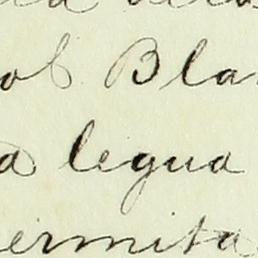 ob Bla
a legua
ermita